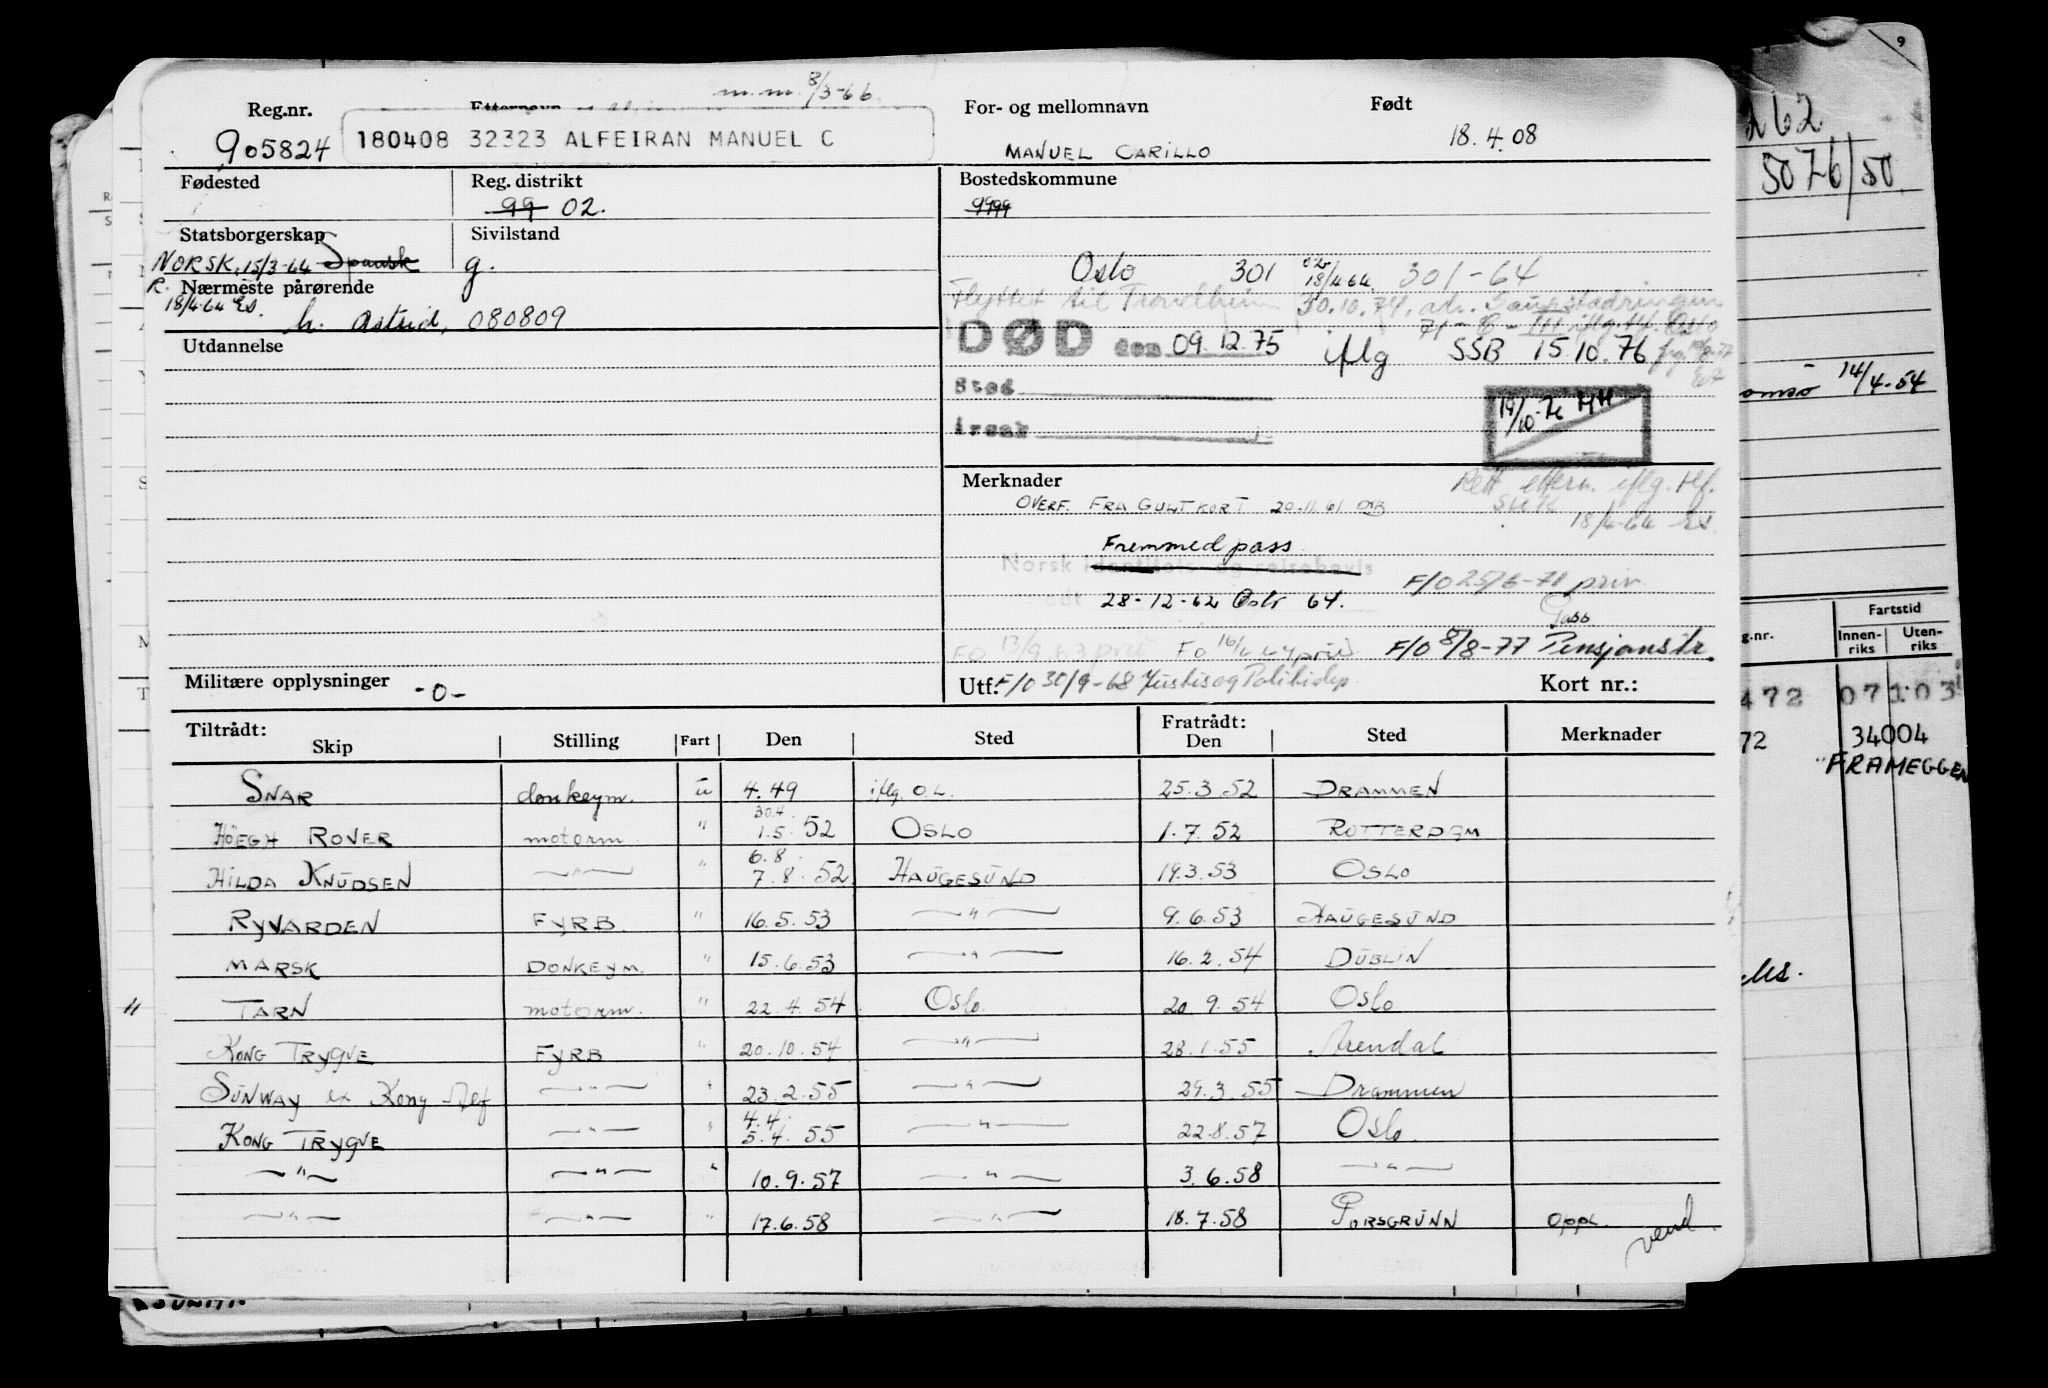 m.m. 8/3-66
Reg.nr. Etternavn For- og mellomnavn Født
905824 180408 32323 ALFEIRAN MANUEL C MANUEL CARILLO 18.4.08
Fødested Reg. distrikt Bostedskommune
99 02. 9999
Statsborgerskap Sivilstand
NORSK, 15/3-64 Spansk g. Oslo 301 18/4 64 301-64
R. Nærmeste pårørende Flyttet til Trondheim 30.10.74, adr. Saupstadringen
18/4-64 h. Astrid, 080809 71-C-III iflg. Oslo
Utdannelse DØD den 09.12.75 iflg SSB 15.10.76
Sted
Årsak
19/10-76 HH
Merknader Rett ettern. iflg. Hf.
OVERF. FRA GULT KORT 20.11.61
18/4-64
Fremmedpass
Norsk identitets- og reisebevis F/O 25/6-71 priv.
28-12-62 Oslo 64. Pass
FO 13/9.67 priv FO 16/4 priv F/O 8/8-77 Pensjonstr.
Militære opplysninger -0- Utf: F/O 30/9-68 Justis og Politidep. Kort nr.:
Tiltrådt: Fratrådt:
Skip Stilling Fart Den Sted Den Sted Merknader
SNAR donkeym. u 4.49 iflg. O.L. 25.3.52 DRAMMEN
30.4
HÖEGH ROVER motorm. " 1.5.52 OSLO 1.7.52 ROTTERDAM
6.8.
HILDA KNUDSEN —"— " 7.8.52 HAUGESUND 19.3.53 OSLO
RYVARDEN FYRB. " 16.5.53 —"— 9.6.53 HAUGESUND
MARSK DONKEYM. " 15.6.53 —"— 16.2.54 DUBLIN
TARN motorm. " 22.4.54 Oslo 20.9.54 Oslo
KONG TRYGVE FYRB " 20.10.54 —"— 28.1.55 Arendal
SUNWAY ex Kong Alf —"— " 23.2.55 —"— 29.3.55 Drammen
4.4.
KONG TRYGVE —"— " 5.4.55 —"— 22.8.57 Oslo
—"— —"— " 10.9.57 —"— 3.6.58 —"—
—"— —"— " 17.6.58 —"— 18.7.58 PORSGRUNN oppl.
vend.
9
262
5076/50
omsø 14/4-54
Fartstid
g.nr. Innen-riks Uten-riks
472 07103
72 34004
FRAMEGGEN